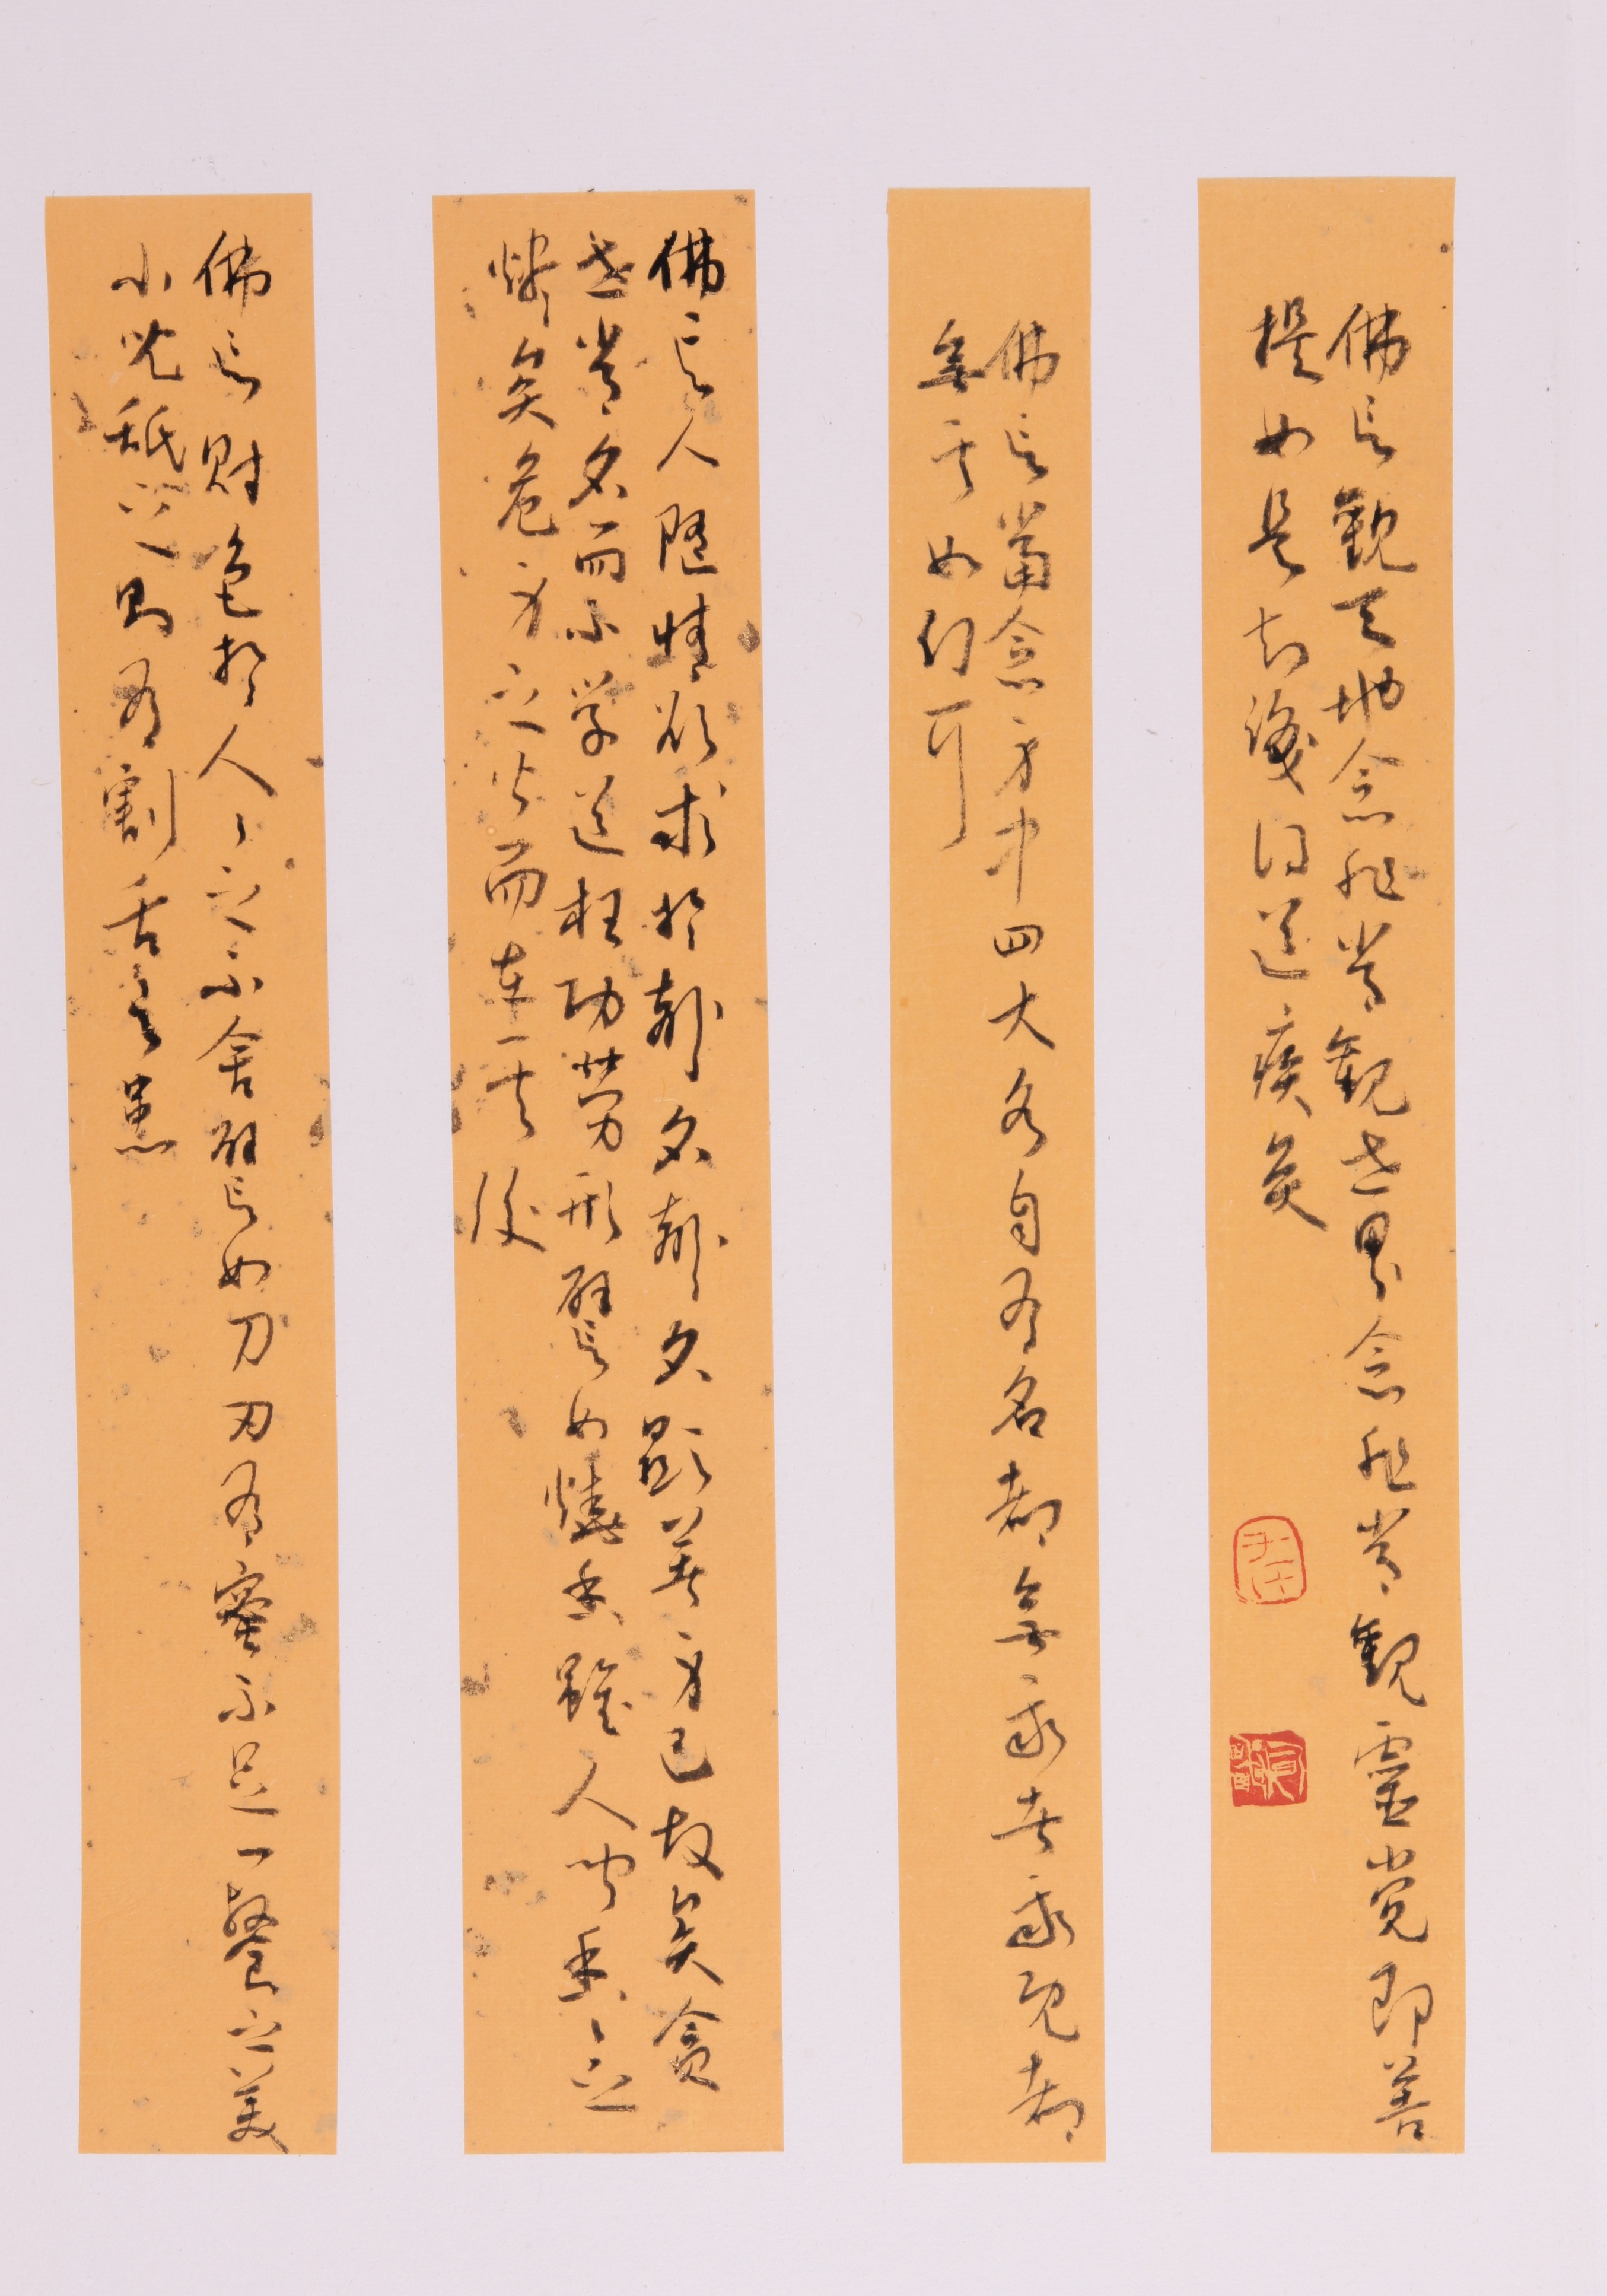 佛言觀天地念非常觀世界念非常觀靈覺即菩
提如是知識得道疾矣
佛言當念身中四大各自有名都無我者我既都
無其如幻耳
佛言人隨情欲求於聲名聲名顯著身已故矣貪
世常名而不學道枉功勞形譬如燒香雖人聞香々之
燼矣危身之火而在其後
佛言財色於人々之不舍譬如刀刃有蜜不足一餐之美
小兒舐之則有割舌之患